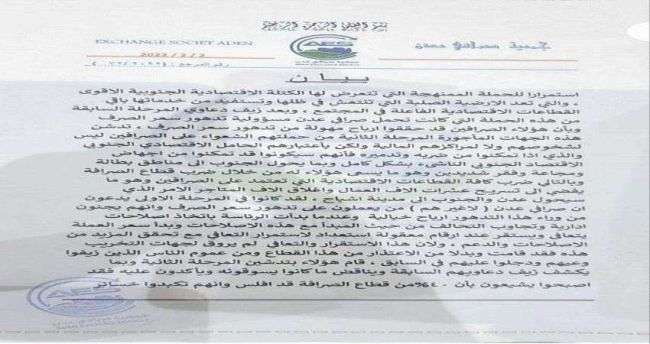 EXCHANGE SOCIET ADEN
AES
جمعية صرافي عدن
2022/2/2
رقم المرجع:
بيان
استمرارا للحملة الممنهجة التي تتعرض لها الكتلة الاقتصادية الجنوبية الاقوى
، والتي تعد الارضية الصلبة التي تنتعش في ظلها وتستفيد من خدماتها باقي
القطاعات الاقتصادية الفاعلة في المجتمع . وبعد زيف دعاوي المرحلة السابقة
من هذه الحملة التي كانت تحمل صرافي عدن مسؤولية تدهور سعر الصرف
وبأن هؤلاء الصرافين قد حققوا ارباح مهولة من تدهور سعر الصرف . تدشن
هذه الجهات المأجورة المرحلة الثانية من حملتهم الشعواء على الصرافين ليس
لشخوصهم ولا لمراكزهم المالية ولكن بأعتبارهم الحامل الاقتصادي الجنوبي
والذي اذا تمكنوا من ضربه وتدميره فأنهم سيكونوا قد تمكنوا من اجهاض
الاقتصاد الجنوبي الناشئ بشكل كامل وبما يحول الجنوب الى مناطق بطالة
ومجاعة وفقر شديدين وهو ما يسعى هؤلاء . من خلال ضرب قطاع الصرافة
وبالتالي ضرب كافة القطاعات الاقتصادية التي تعتمد على الصرافين وهو ما
يفضي الى تسريح عشرات الاف العمال واغلاق الاف المتاجر الامر الذي
سيحول عدن والجنوب الى مدينة اشباح . لقد كانوا في المرحلة الاولى يدعون
ان صرافي عدن ( لاغيرهم ) من يعملون على تدهور سعر الصرف وانهم يجنون
من وراء هذا التدهور ارباح خيالية وعندما بدأت الرئاسة بأتخاذ اصلاحات
ادارية وتجاوب التحالف من حيث المبدأ مع هذه الاصلاحات وبدأ سعر العملة
يتعافى ويستقر عند ارقام معقولة استعدادا لاستمرار التعافي مع تحقق المزيد من
الاصلاحات والدعم . ولأن هذا الاستقرار والتعافي لم يروق لجهات التخريب
هذه فقد قامت وبدلا من الاعتذار من هذا القطاع ومن عموم الناس الذين زيفوا
وعيهم ودجلوا عليهم في السابق . قام هؤلاء بتدشين المرحلة الثانية وبما
يكشف زيف دعاويهم السابقة ويناقض ما كانوا يسوقونه ويأكدون عليه فقد
اصبحوا يشيعون بأن ٤٠% من قطاع الصرافة قد افلس وانهم تكبدوا خسائر